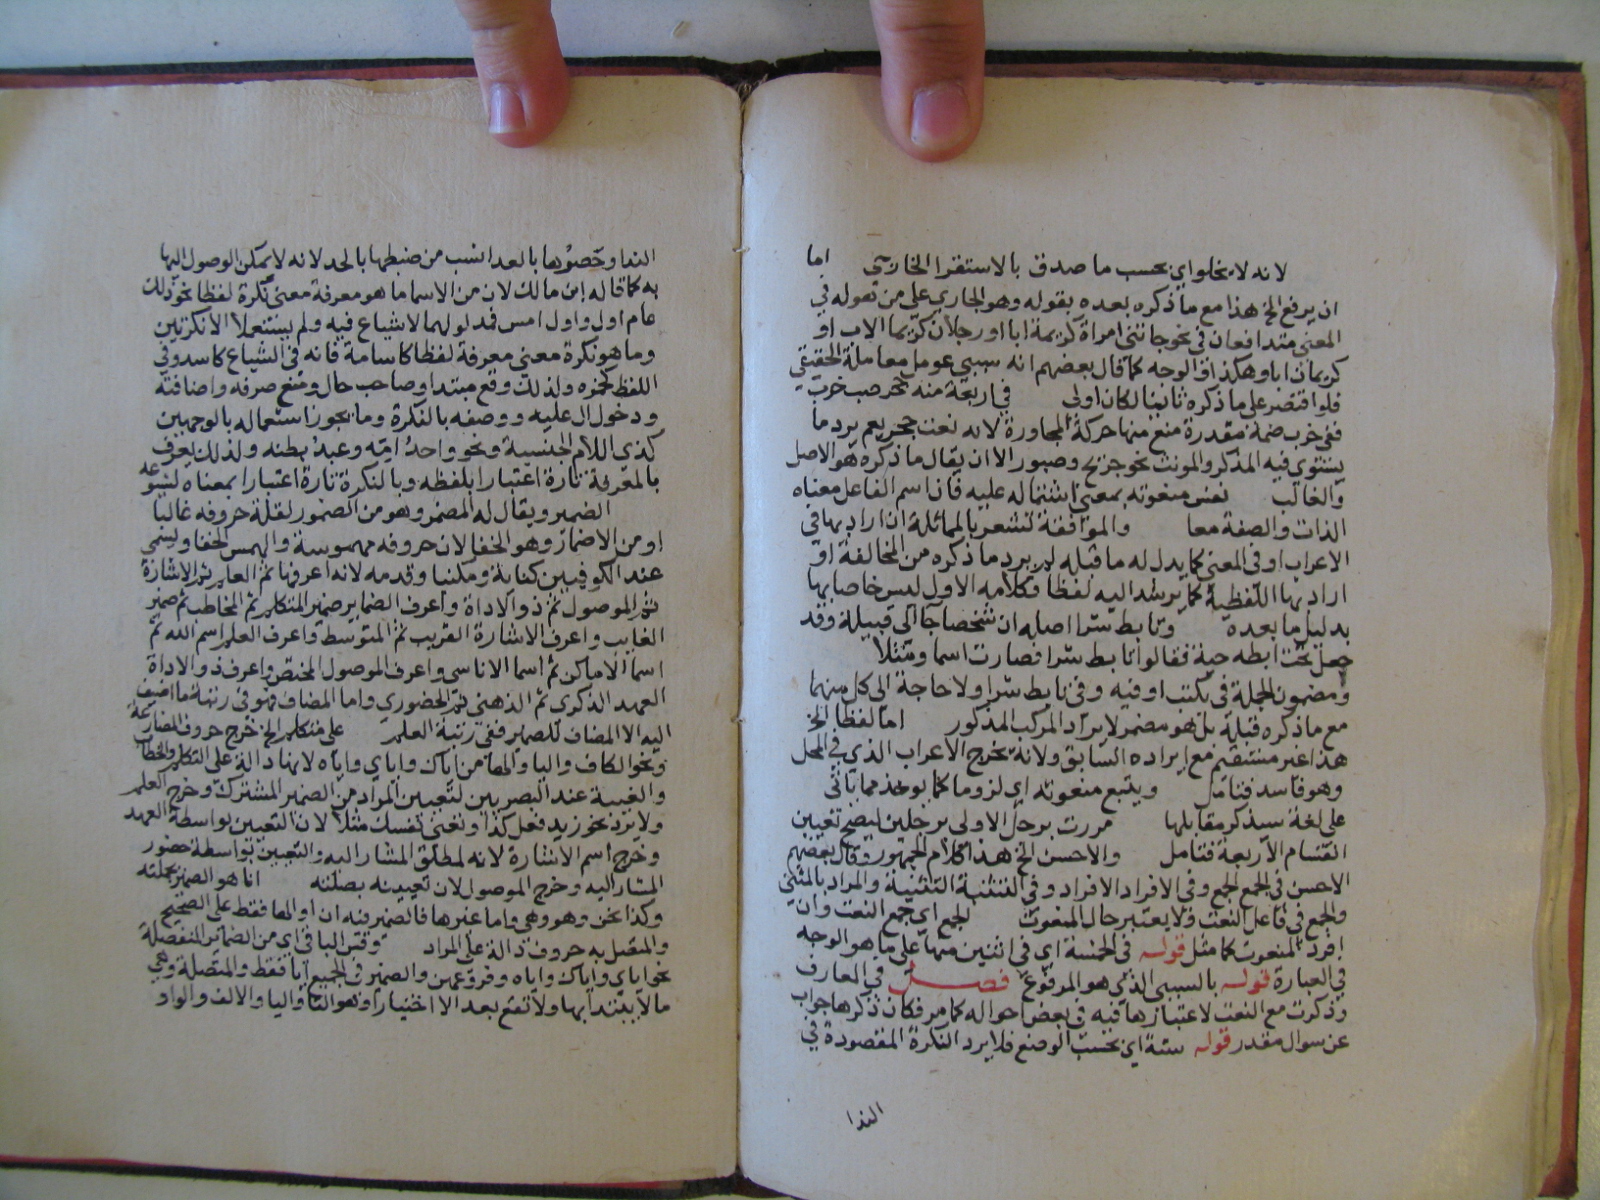 لانه لا يخلو اي بحسب ما صدق بالاستقرا الخارجي اما
ان يرفع الخ هذا مع ما ذكره بعده بقوله وهو الجاري على من هو له في
المعنى متدافعان في نحو جاتني امراة كريمة ابا او رجلان كريما الاب او
كريمان ابا وهكذا في الوجه كما قال بعضهم انه سببي عومل معاملة الحقيقي
فلو اقتصر على ما ذكره ثانيا لكان اولى في اربعة منه نحو ضب خرب
ففي خرب ضمة مقدرة منع منها حركة المجاورة لانه نعت جحر نعم يرد ما
يستوي فيه المذكر والمونث نحو جريح وصبور الا ان يقال ما ذكره هو الاصل
والغالب نفس منعوته بمعنى اشتماله عليه فان اسم الفاعل معناه
الذات والصفة معا والموافقة تشعر بالمماثلة ان اراد بها في
الاعراب او في المعنى كما يدل له ما قبله لم يرد ما ذكره من المخالفة او
اراد بها اللفظية كما يرشد اليه لفظا وكلامه الاول ليس خاصا بها
بدليل ما بعده وتابط شرا اصله ان شخصا جا الى قبيلة وقد
جعل تحت ابطه حية فقالوا تابط شرا فصارت اسما ومثلا
ومضمون الجملة في يكتب او فيه وفي تابط شرا ولا حاجة الى كل منهما
مع ما ذكره قبله بل هو مضمر لايراد المركب المذكور اما لفظا الخ
هذا غير مستقيم مع ايراده السابق ولانه يخرج الاعراب الذي في المحل
وهو فاسد فتامل ويتبع منعوته اي لزوما كما يوخذ مما ياتي
على لغة سيذكر مقابلها مررت برجل الاولى برجلين ليصح تعيين
القسام الاربعة فتامل والاحسن الخ هذا كلام الجمهور وقال بعضهم
الاحسن في الجمع الجمع وفي الافراد الافراد وفي التثنية التثنية والمراد بالمثنى
والجمع في فاعل النعت ولا يعتبر حال المنعوت لجمع اي جمع النعت وان
افرد المنعوت كما مثل قوله في الخمسة اي في اثنين منها على ما هو الوجه
في العبارة قوله بالسببي الذي هو المرفوع فصل في المعارف
وذكرت مع النعت لاعتبارها فيه في بعض احواله كما مر فكان ذكرها جواب
عن سوال مقدر قوله ستة اي بحسب الوضع فلا يرد النكرة المقصودة في
الندا
الندا وحصوها بالعد انسب من ضبطها بالحد لانه لا يمكن الوصول اليها
به كما قاله ابن مالك لان من الاسما ما هو معرفة معنى نكرة لفظا نحو ذلك
عام اول واول امس فمدلولهما لا شياع فيه ولم يستعملا الا نكرتين
وما هو نكرة معنى معرفة لفظا كاسامة فانه في الشياع كاسد وفي
اللفظ كحمزه ولذلك وقع مبتدا وصاحب حال ومنع صرفه واضافته
ودخول ال عليه ووصفه بالنكرة وما يجوز استعماله بالوجهين
كذي اللام الجنسية ونحو واحد امه وعبد بطنه ولذلك يعرف
بالمعرفة تارة اعتبارا بلفظه وبالنكرة تارة اعتبارا بمعناه لشيوعه
الضمير ويقال له المضمر وهو من الضمور لقلة حروفه غالبا
او من الاضمار وهو الخفا لان حروفه مهموسة والهمس الخفا ويسمى
عند الكوفيين كناية ومكنيا وقدمه لانه اعرفها ثم العلم ثم الاشارة
ثم الموصول ثم ذو الاداة واعرف الضماير ضمير المتكلم ثم المخاطب ثم ضمير
الغايب واعرف الاشارة القريب ثم المتوسط واعرف العلم اسم الله ثم
اسما الاماكن ثم اسما الاناسي واعرف الموصول المختص واعرف ذو الاداة
العهد الذكري ثم الذهني ثم الحضوري واما المضاف فهو في رتبة ما اضيف
اليه الا المضاف للضمير ففي رتبة العلم على متكلم الخ خرج حروف المضارعة
ونحو الكاف واليا والها من اياك واياي واياه لانها دالة على التكلم والخطاب
والغيبة عند البصريين لتعيين المراد من الضمير المشترك وخرج العلم
ولا يرد نحو زيد فعل كذا وتعني نفسك مثلا لان التعيين بواسطة العهد
وخرج اسم الاشارة لانه لمطلق المشار اليه والتعيين بواسطة حضور
المشار اليه وخرج الموصول لان تعيينه بصلته انا هو الضمير بجملته
وكذا نحن وهو وهي واما غيرها فالضمير فيه ان او الها فقط على الصحيح
والمتصل به حروف دالة على المراد وقس الباقي اي من الضماير المنفصلة
نحو اياي واياك واياه وفروعهن والضمير في الجميع ايا فقط والمتصلة وهي
ما لا يبتدا بها ولا تقع بعد الا اختيارا وهو التا واليا والالف والواو